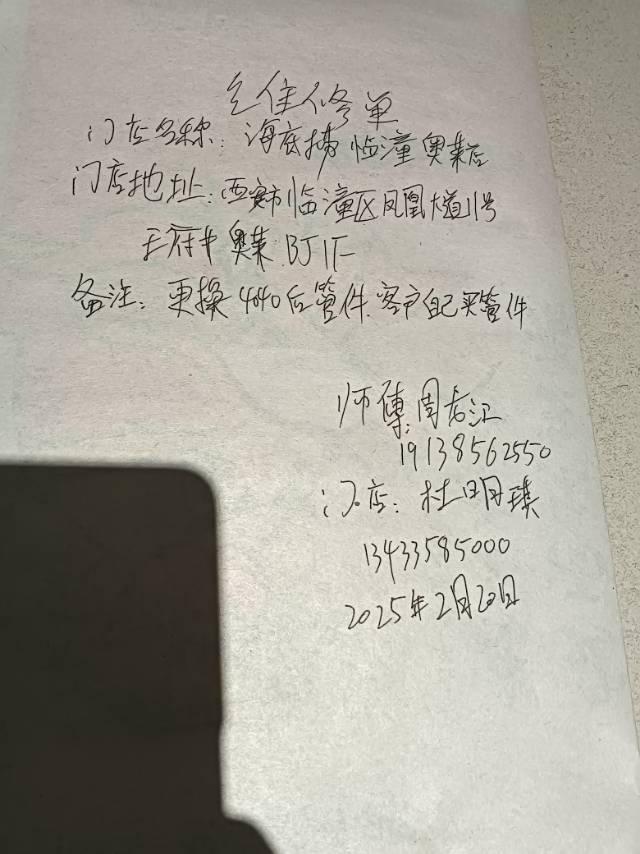 维修单
门店名称：海底捞临潼奥莱店
门店地址：西安市临潼区凤凰大道1号
王府井奥莱.BJ1F
备注：更换4040后管件.客户自己买管件
师傅：周志江
19138562550
门店：杜明瑛
13433585000
2025年2月20日